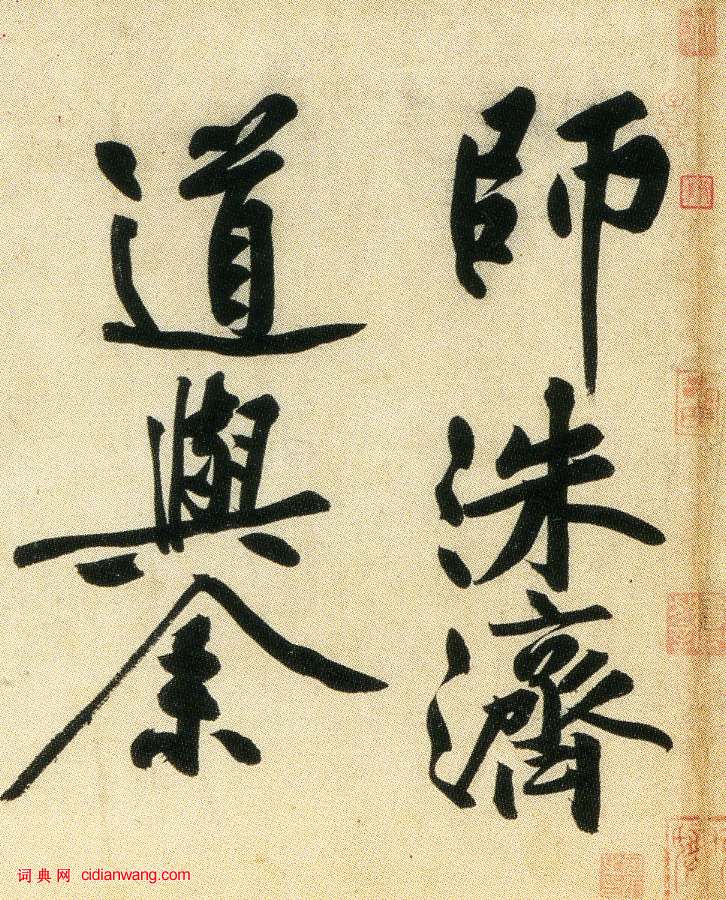 師洙濟
道與余
词典网 cidianwang.com